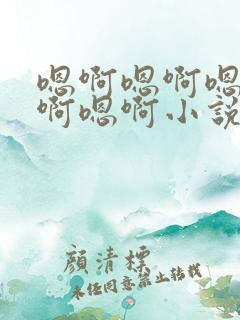 嗯啊嗯啊嗯
啊嗯啊小说
顏清標
未经同意禁止转载